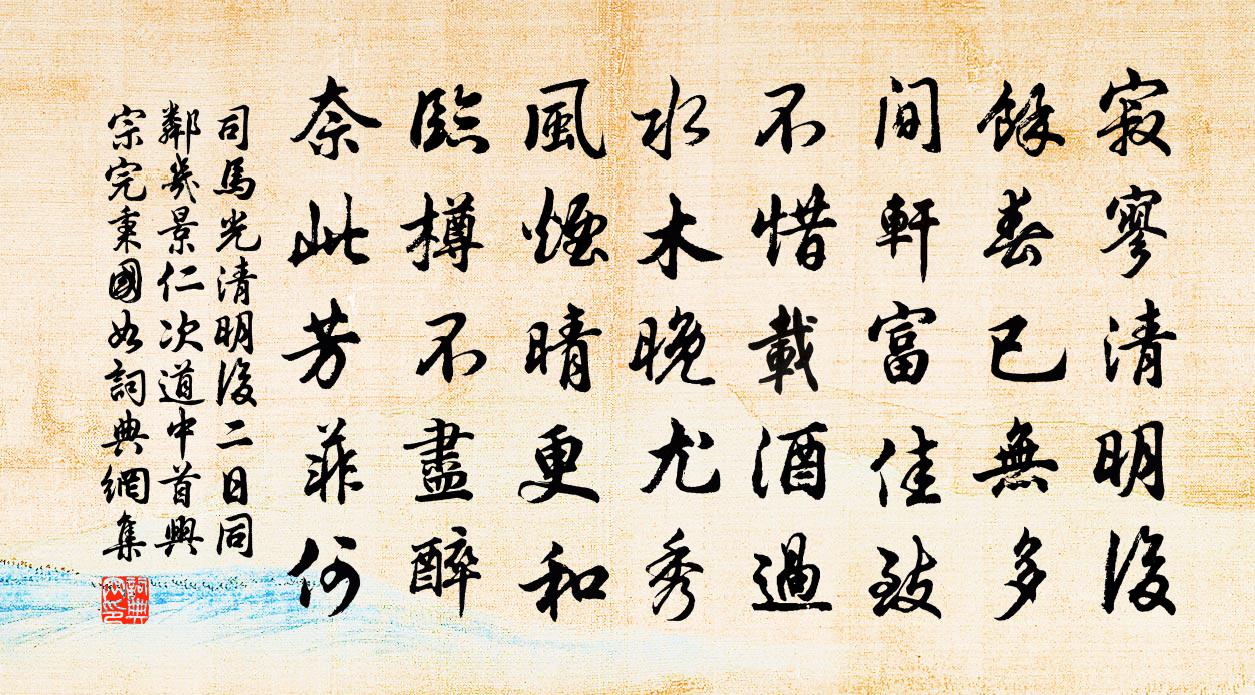 寂寥清明後
餘春已無多
閒軒富佳致
不惜載酒過
水木晚尤秀
風煙晴更和
臨樽不盡醉
奈此芳菲何
司馬光清明後二日同
鄰幾景仁次道中首興
宗完秉國如詞典網集